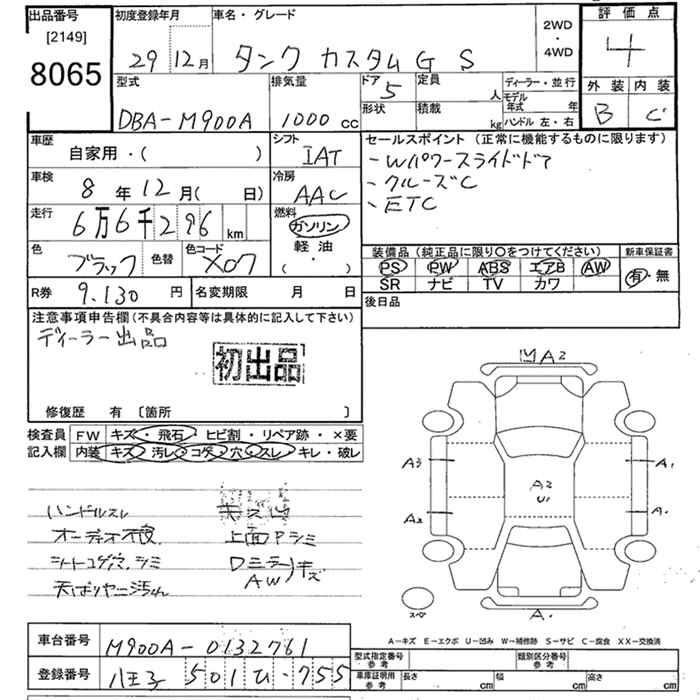 出品番号
[2149]
8065
初度登録年月
29 12月
車名・グレード
タンク カスタムG S
2WD
・
4WD
評価点
4
外装 内装
B C
型式
DBA-M900A
排気量
1000 cc
ドア
5
定員
人
形状
積載
kg
ディーラー・並行
モデル
年式 年
ハンドル 左・右
車歴
自家用・( )
シフト
IAT
車検
8 年 12 月( 日)
冷房
AAC
走行
6万6千296 km
燃料
ガソリン
軽油
( ・ )
色
ブラック
色替
色コード
X07
R券
9.130 円
名変期限 月 日
セールスポイント (正常に機能するものに限ります)
-Wパワースライドドア
-クルーズC
-ETC
装備品 (純正品に限り〇をつけてください)
新車保証書
PS PW ABS エアB AW
SR ナビ TV カワ
有・無
後日品
注意事項申告欄 (不具合内容等は具体的に記入して下さい)
ディーラー出品
初出品
修復歴 有 〔箇所 〕
検査員
記入欄
FW キズ・飛石・ヒビ割・リペア跡・×要
内装 キズ・汚レ・コゲ・穴・スレ・キレ・破レ
ハンドルスレ
オーディオ不良
上面Pシミ
シートコゲ穴.シミ
Dミラー
AW
キズ
天ばりヤニ汚れ
A2
A3
A1
A2
U1
A2
A1
スペア
A1
A-キズ E-エクボ U-凹み W-補修跡 S-サビ C-腐食 XX-交換済
車台番号
M900A-0132761
登録番号
八王子 501 ひ・755
型式指定番号
参考
類別区分番号
参考
車庫証明用
参考
長さ cm
幅 cm
高さ cm